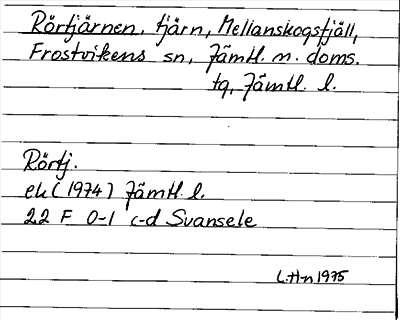 Rörtjärnen, tjärn, Mellanskogsfjäll,
Frostvikens sn, Jämtl. n. doms.
tg, Jämtl. l.
Rörtj.
ek (1974) Jämtl. l.
22 F 0-1 c-d Svansele
L.H-n 1975